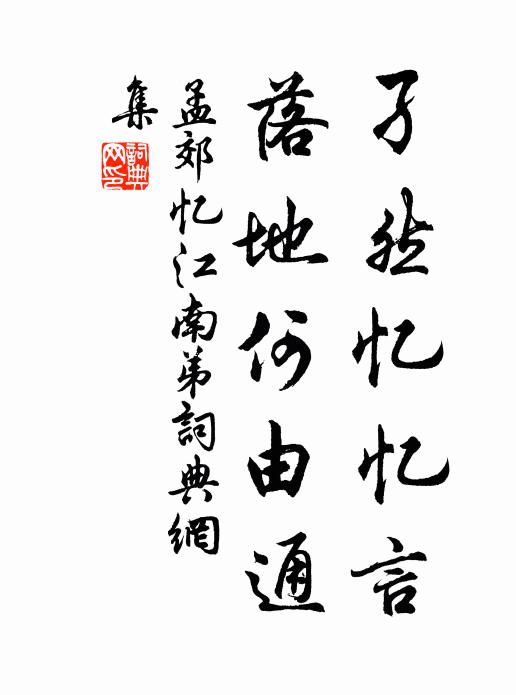 孑然忆忆言
落地何由通
孟郊忆江南弟詞典網
集
詞典
网印